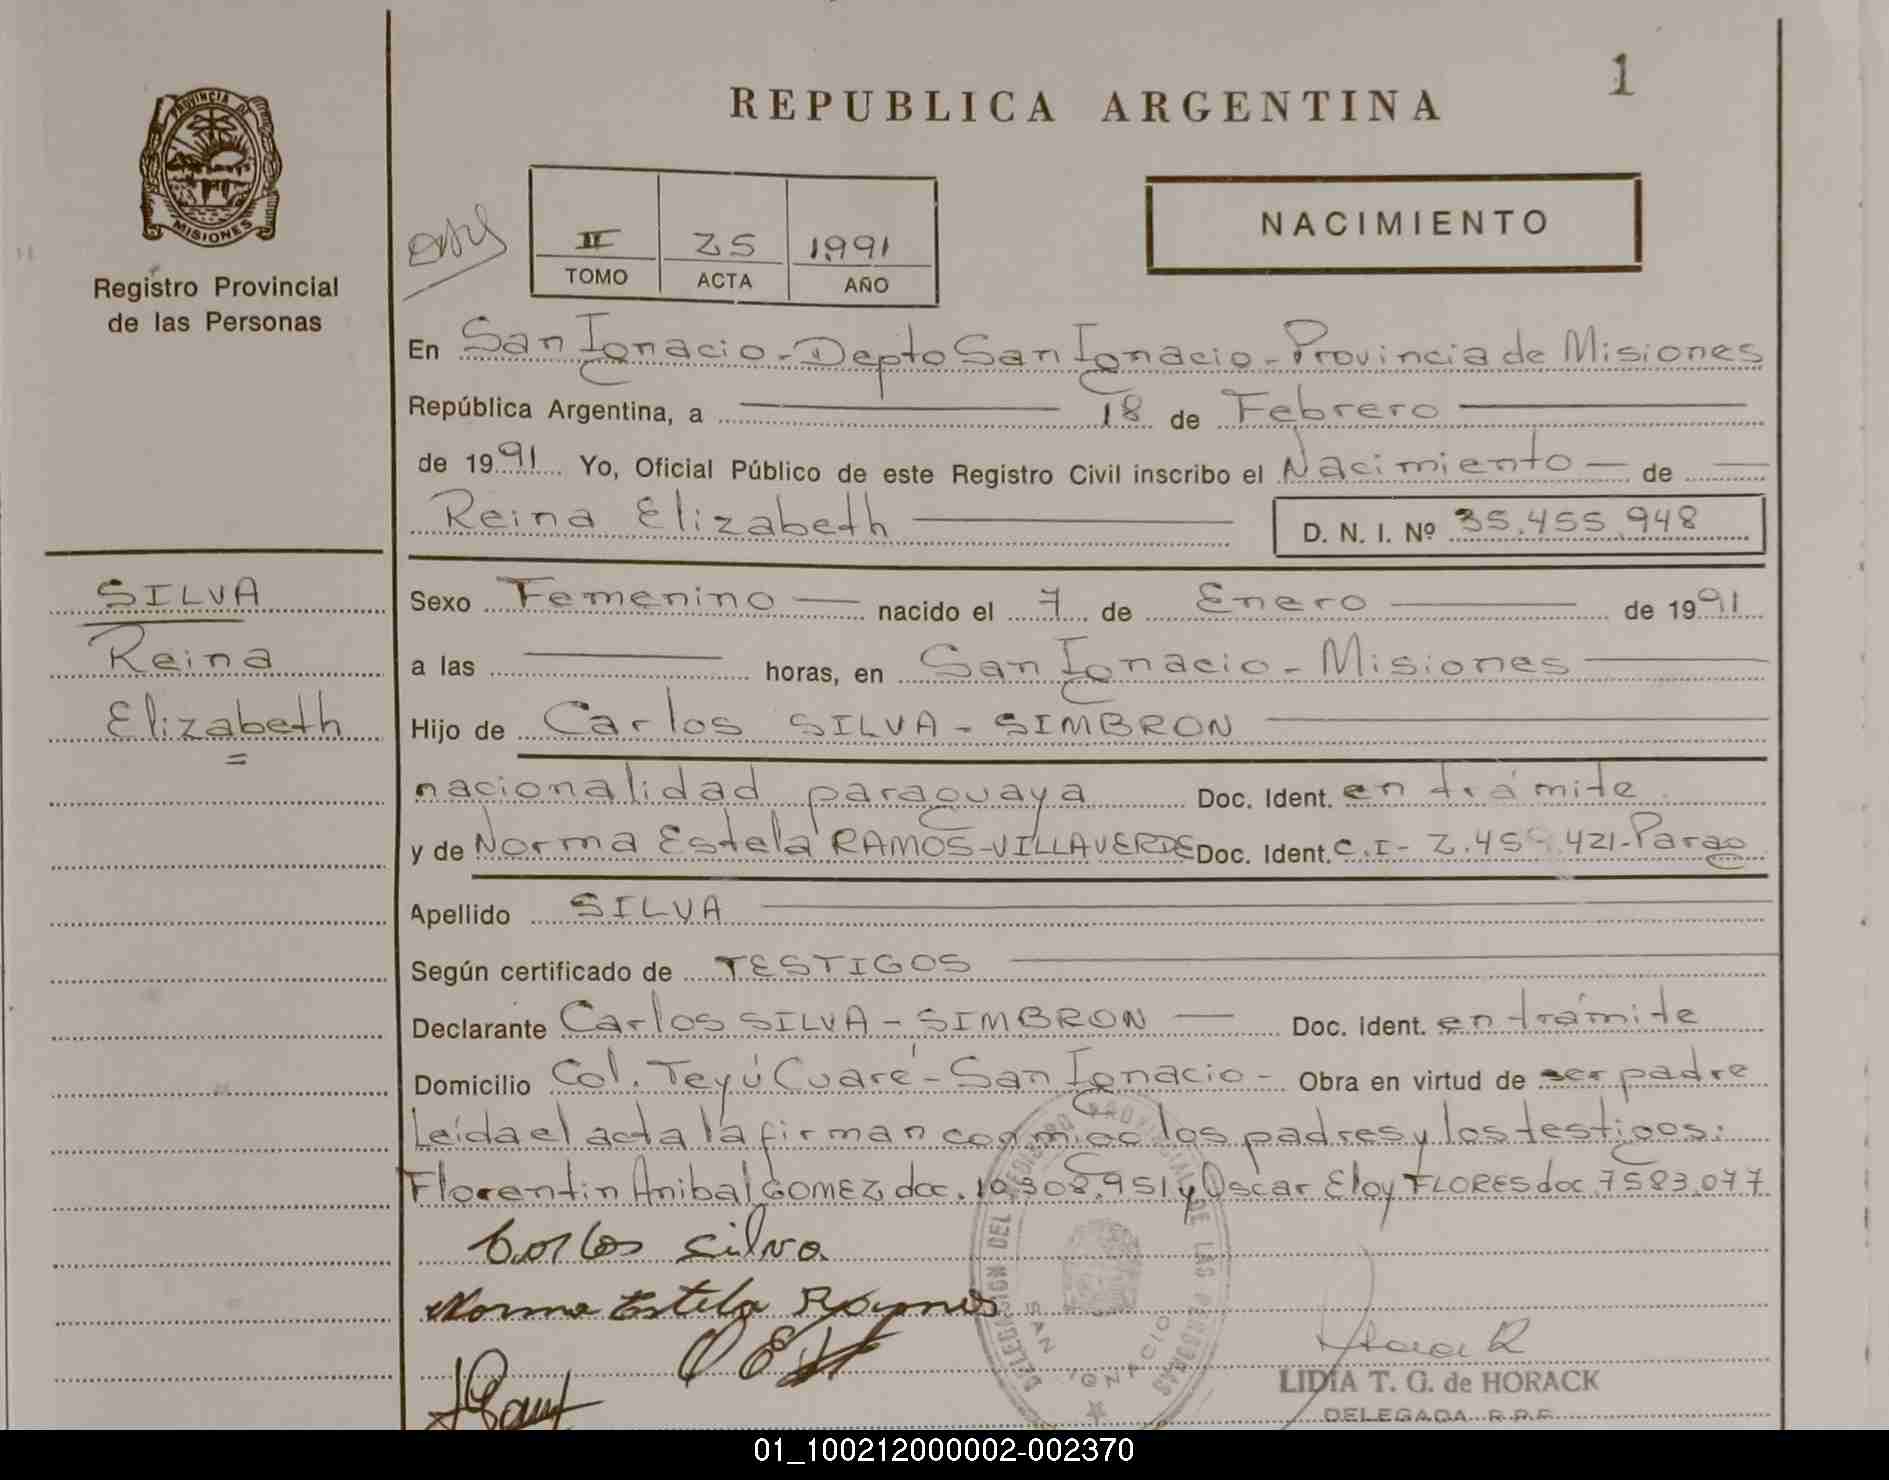 1
REPUBLICA ARGENTINA
PROVINCIA DE
MISIONES
Registro Provincial
de las Personas
II 25 1991
TOMO ACTA AÑO
NACIMIENTO
En San Ignacio - Depto San Ignacio - Provincia de Misiones
República Argentina, a 18 de Febrero
de 1991 Yo, Oficial Público de este Registro Civil inscribo el Nacimiento de
Reina Elizabeth D. N. I. Nº 35.455.948
SILVA
Reina
Elizabeth
Sexo Femenino nacido el 7 de Enero de 1991
a las horas, en San Ignacio - Misiones
Hijo de Carlos SILVA - SIMBRON
nacionalidad paraguaya Doc. Ident. en trámite
y de Norma Estela RAMOS-VILLAVERDE Doc. Ident. C.I- Parag
Apellido SILVA
Según certificado de TESTIGOS
Declarante Carlos SILVA - SIMBRON Doc. Ident. en trámite
Domicilio Col. Teyú Cuaré - San Ignacio - Obra en virtud de ser padre
Leída el acta la firman conmigo los padres y los testigos:
Florentin Anibal GOMEZ doc. 10.308.951 y Oscar Eloy FLORES doc. 7583.077
Carlos Silva
Norma Estela Ramos
DELEGACION DEL REGISTRO PROVINCIAL DE LAS PERSONAS
SAN IGNACIO
LIDIA T. G. de HORACK
DELEGADA R.P.P.
01_100212000002-002370